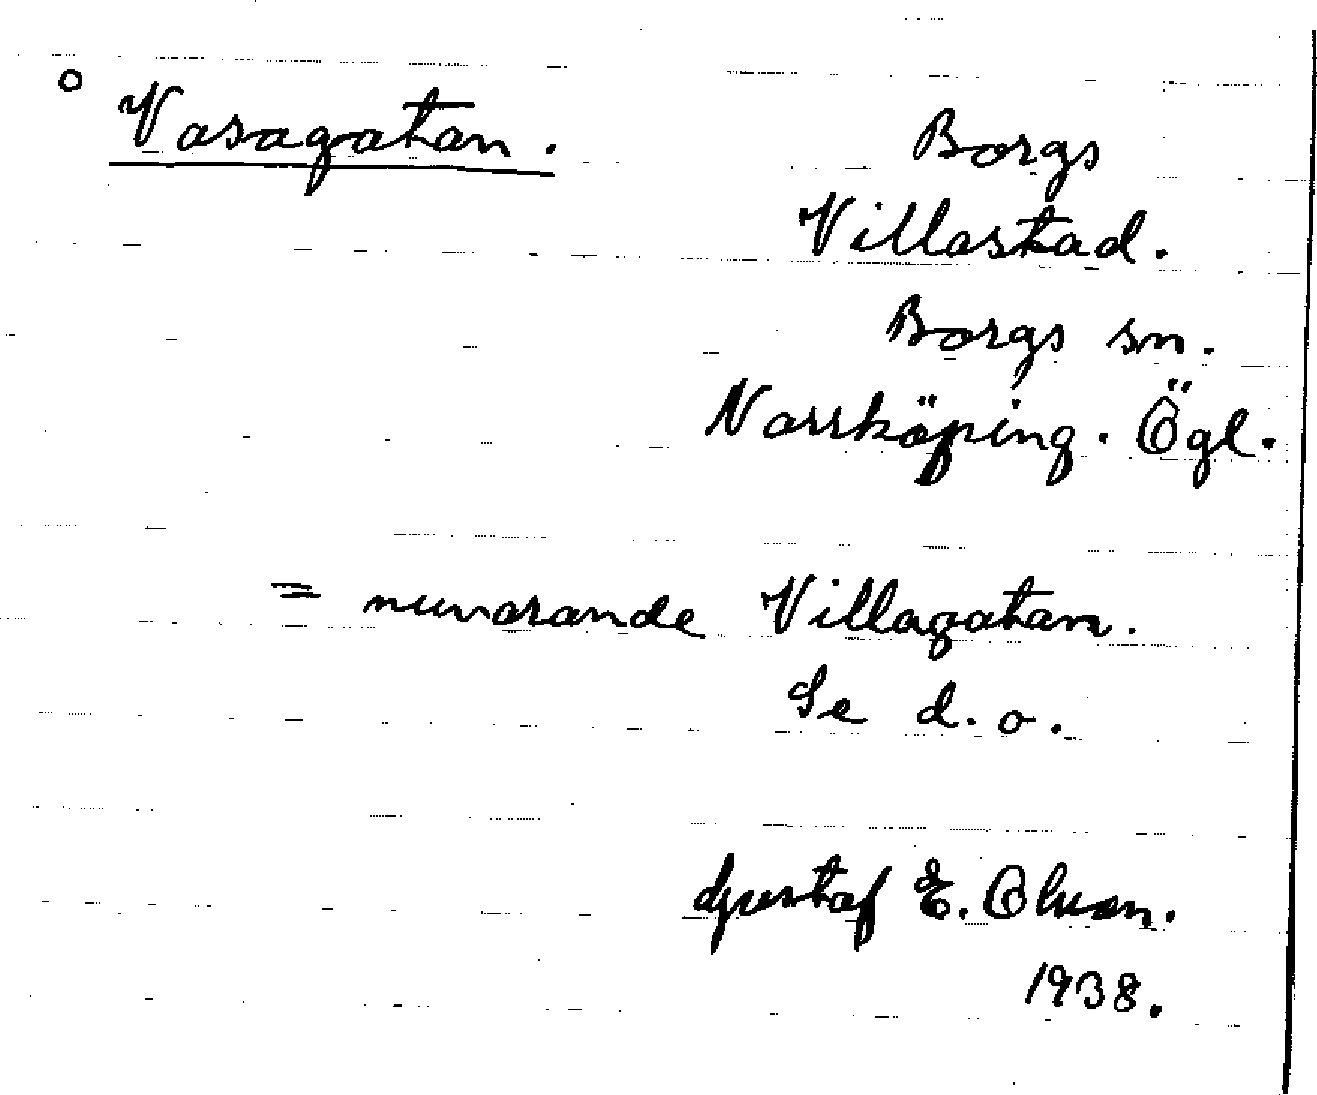 ° Vasagatan.
Borgs
Villastad.
Borgs sn.
Norrköping. Ögl.
= nuvarande Villagatan.
Se d.o.
Gustaf E. Olsson.
1938.